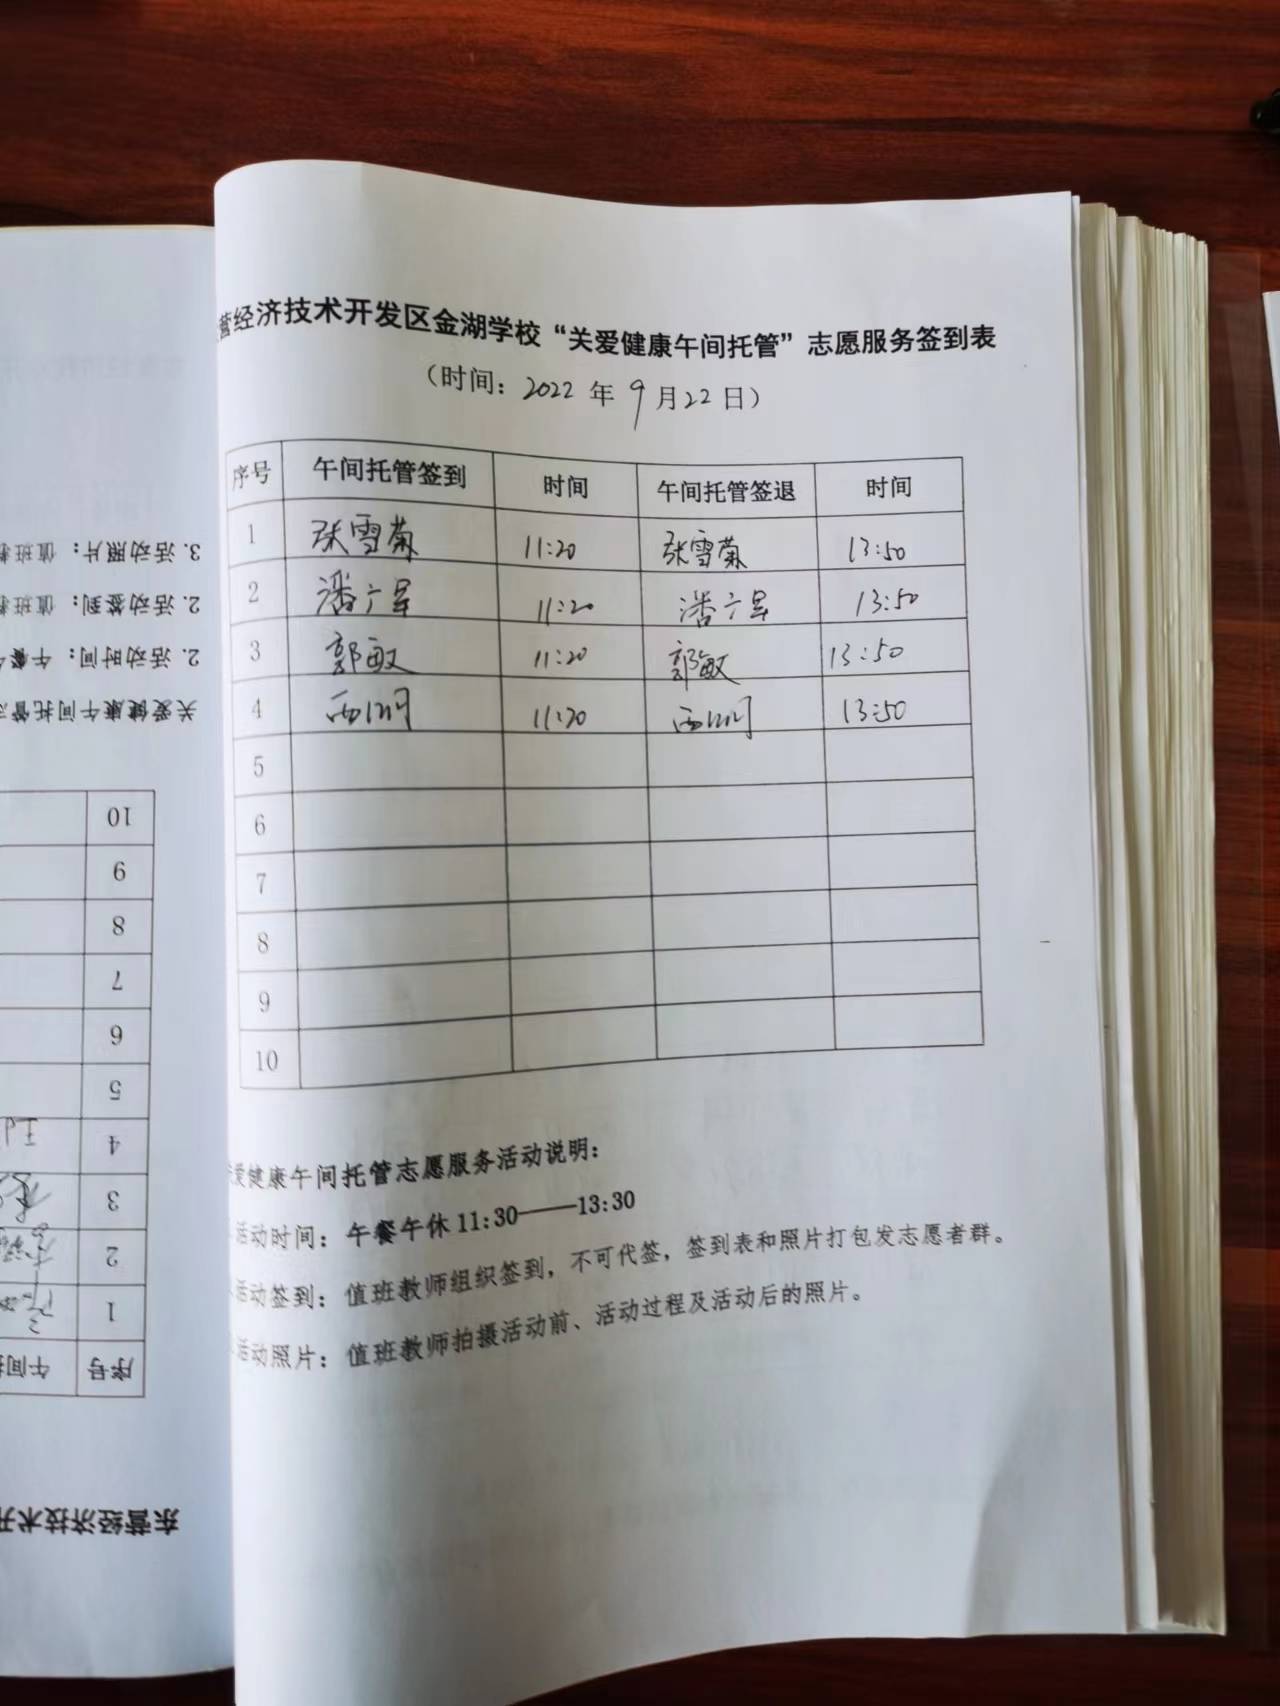 营经济技术开发区金湖学校“关爱健康午间托管”志愿服务签到表
（时间：2022 年 9 月 22 日）
序号 午间托管签到 时间 午间托管签退 时间
1 张雪菊 11:20 张雪菊 13:50
2 潘 11:20 潘 13:50
3 郭敏 11:20 郭敏 13:50
4 11:20 13:50
5
6
7
8
9
10
爱健康午间托管志愿服务活动说明：
活动时间：午餐午休 11:30——13:30
活动签到：值班教师组织签到，不可代签，签到表和照片打包发志愿者群。
活动照片：值班教师拍摄活动前、活动过程及活动后的照片。
东营经济技术开
序号 午间
1
2
3
4
5
6
7
8
9
10
关爱健康午间托管志
2. 活动时间：午餐
2. 活动签到：值班
3. 活动照片：值班